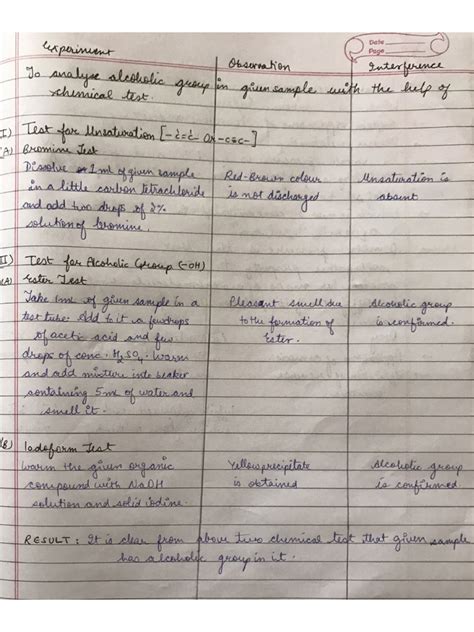 Date
Page
Experiment Observation Interference
To analyse alcoholic group in given sample with the help of
chemical test.
I) Test for Unsaturation [-c=c- Or -c≡c-]
(A) Bromine Test
Dissolve 1 ml of given sample Red-Brown colour Unsaturation is
in a little carbon tetrachloride is not discharged absent
and add two drops of 2%
solution of bromine.
II) Test for Alcoholic Group (-OH)
(A) Ester Test
Take 1ml of given sample in a Pleasant smell due Alcoholic group
test tube. Add to it a few drops to the formation of is confirmed.
of acetic acid and few Ester.
drops of conc. H2SO4. Warm
and add mixture into beaker
containing 5 ml of water and
smell it.
(B) Iodoform Test
Warm the given organic Yellow precipitate Alcoholic group
compound with NaOH is obtained is confirmed
solution and solid iodine.
RESULT: It is clear from above two chemical test that given sample
has alcoholic group in it.